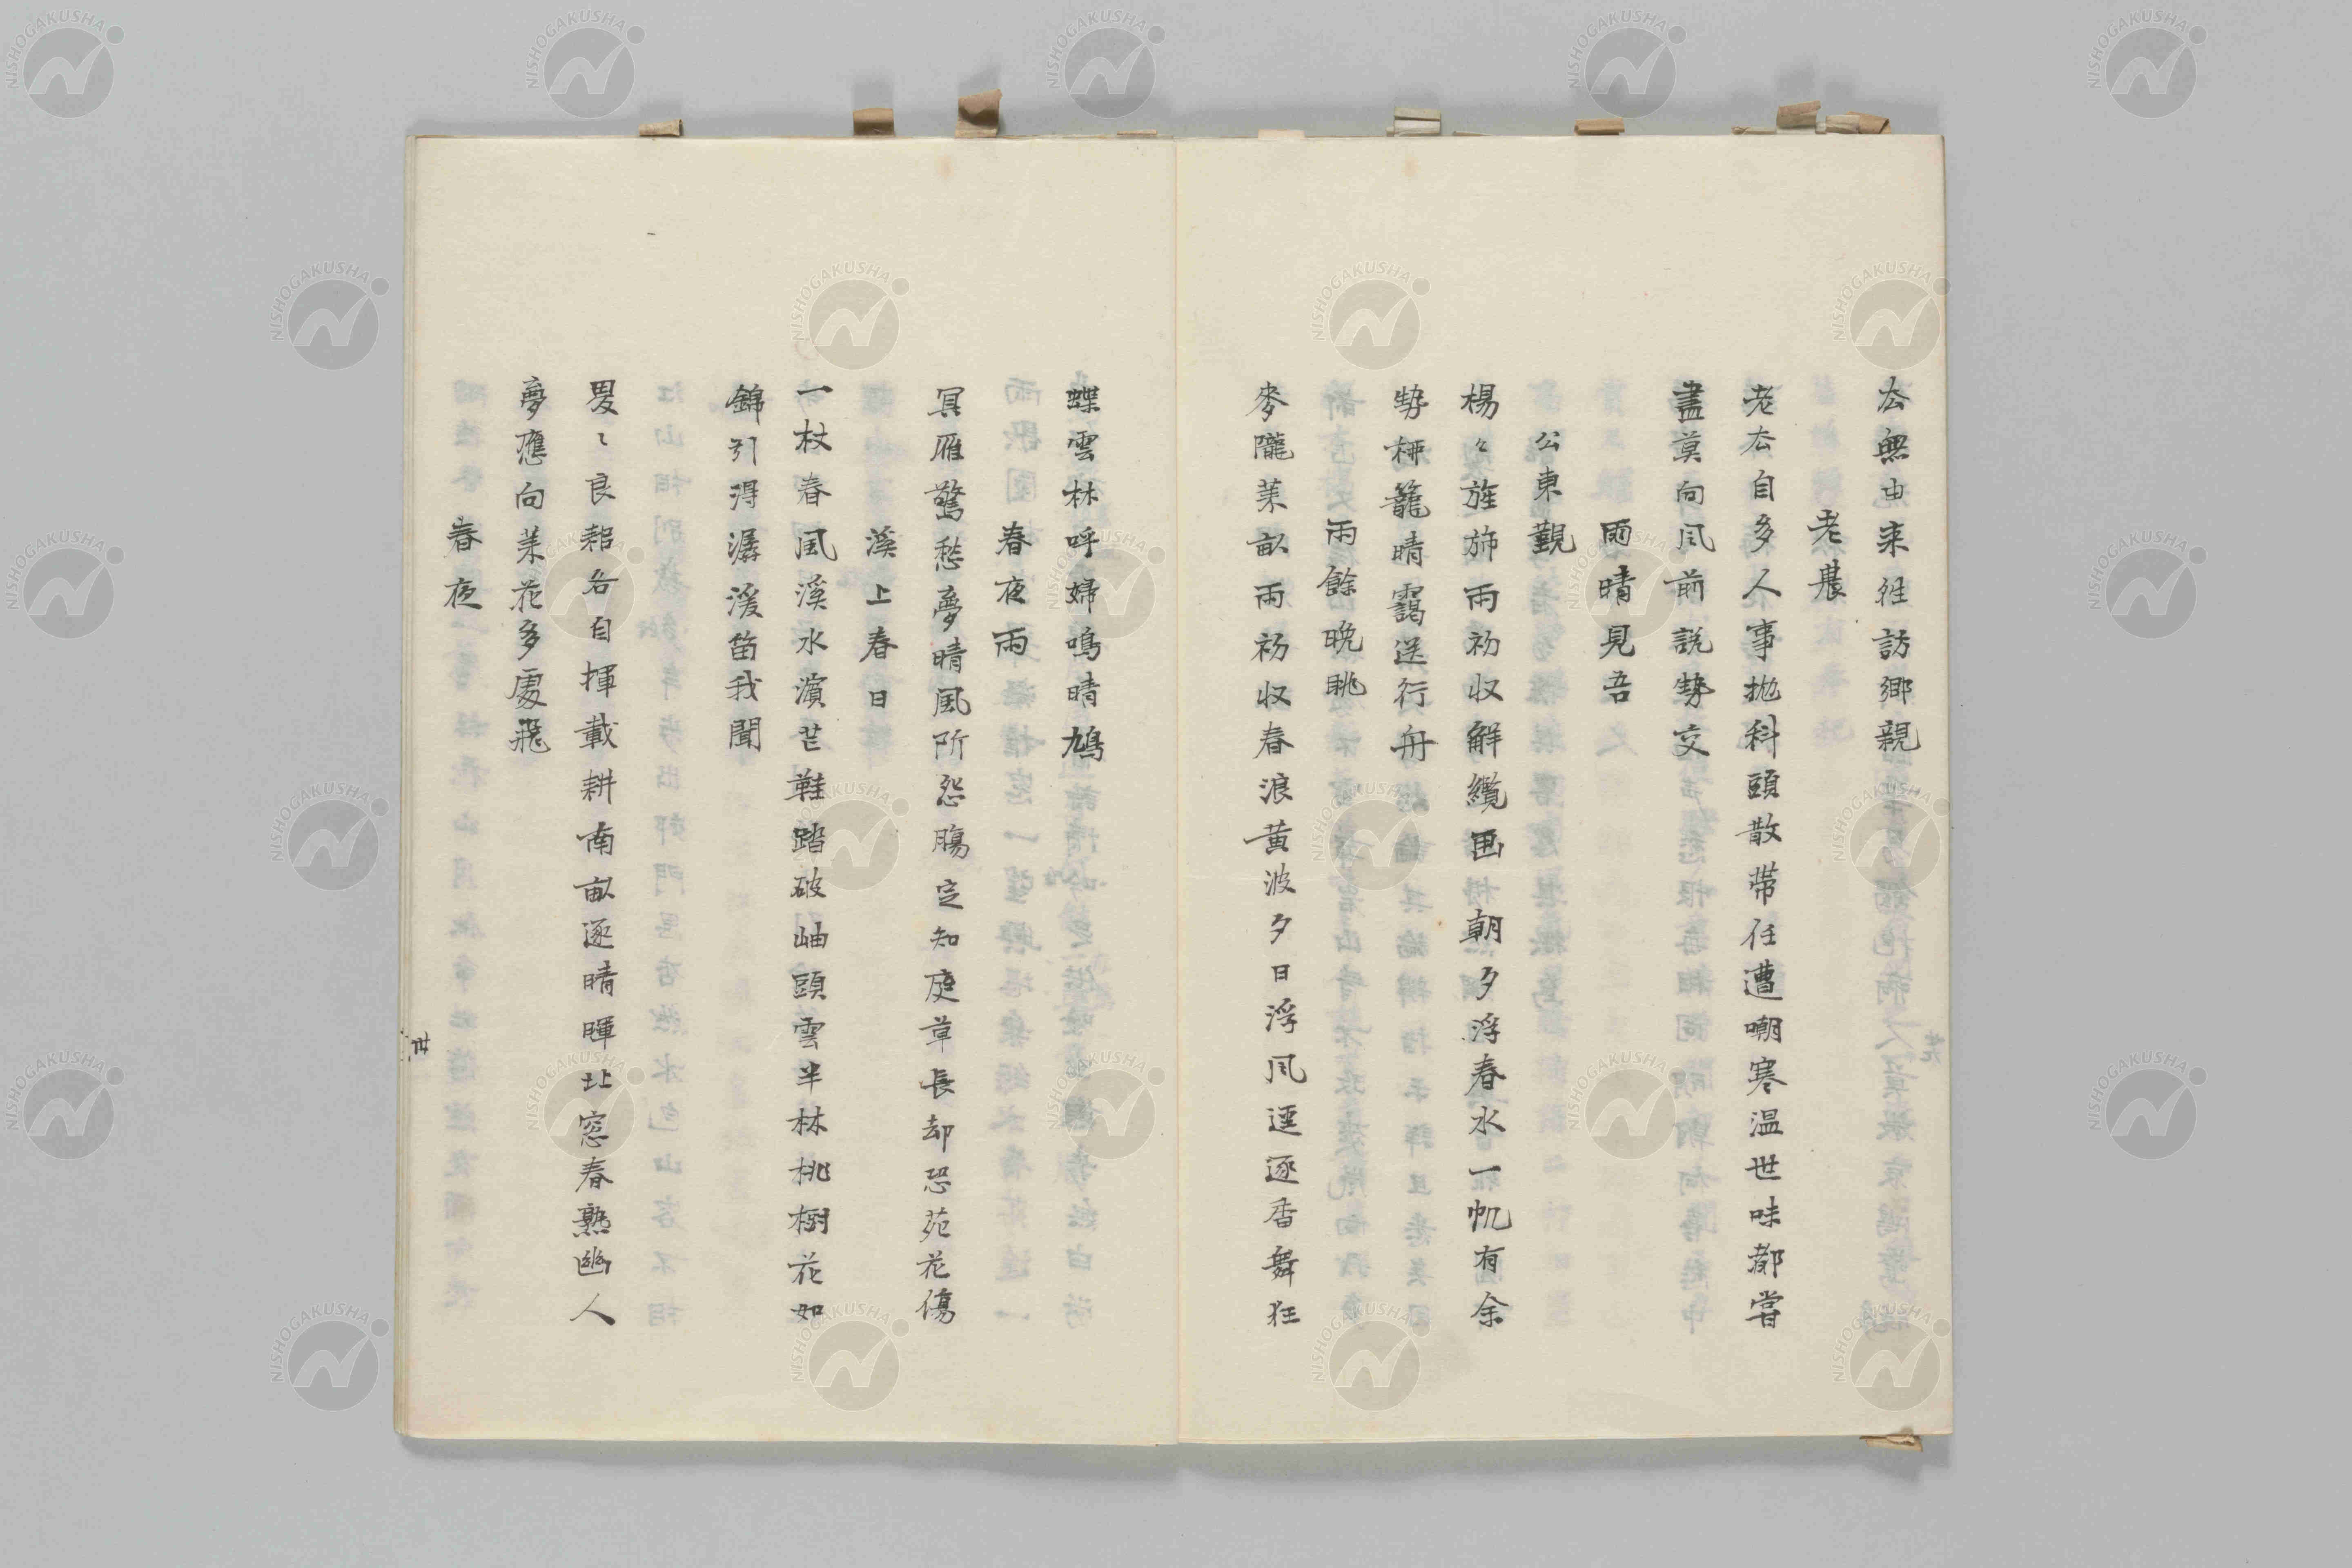 厺無由来往訪鄉親
老農
老厺自多人事拋科頭散帶任遭嘲寒温世味都甞
盡莫向凨前説勢交
雨晴見吾
公東觀
楊々旌斾雨初収觧纜画朝夕浮春水一帆有余
勢栁籠晴靄送行舟
雨餘晩眺
麥隴茉畝雨初収春浪黄波夕日浮凨逕逐香舞狂
蝶雲林呼婦鳴晴鳩
春夜雨
冥雁驚愁夢晴風所怨腸定知庭草長却恐苑花傷
溪上春日
一杖春風溪水濱芒鞋踏破岫頭雲半林桃樹花如
錦引得潺湲笛我聞
畟〻良耜各自揮載耕南畝逐晴暉北窓春熟幽人
夢應向茉花多處飛
春夜
丗
NISHOGAKUSHA